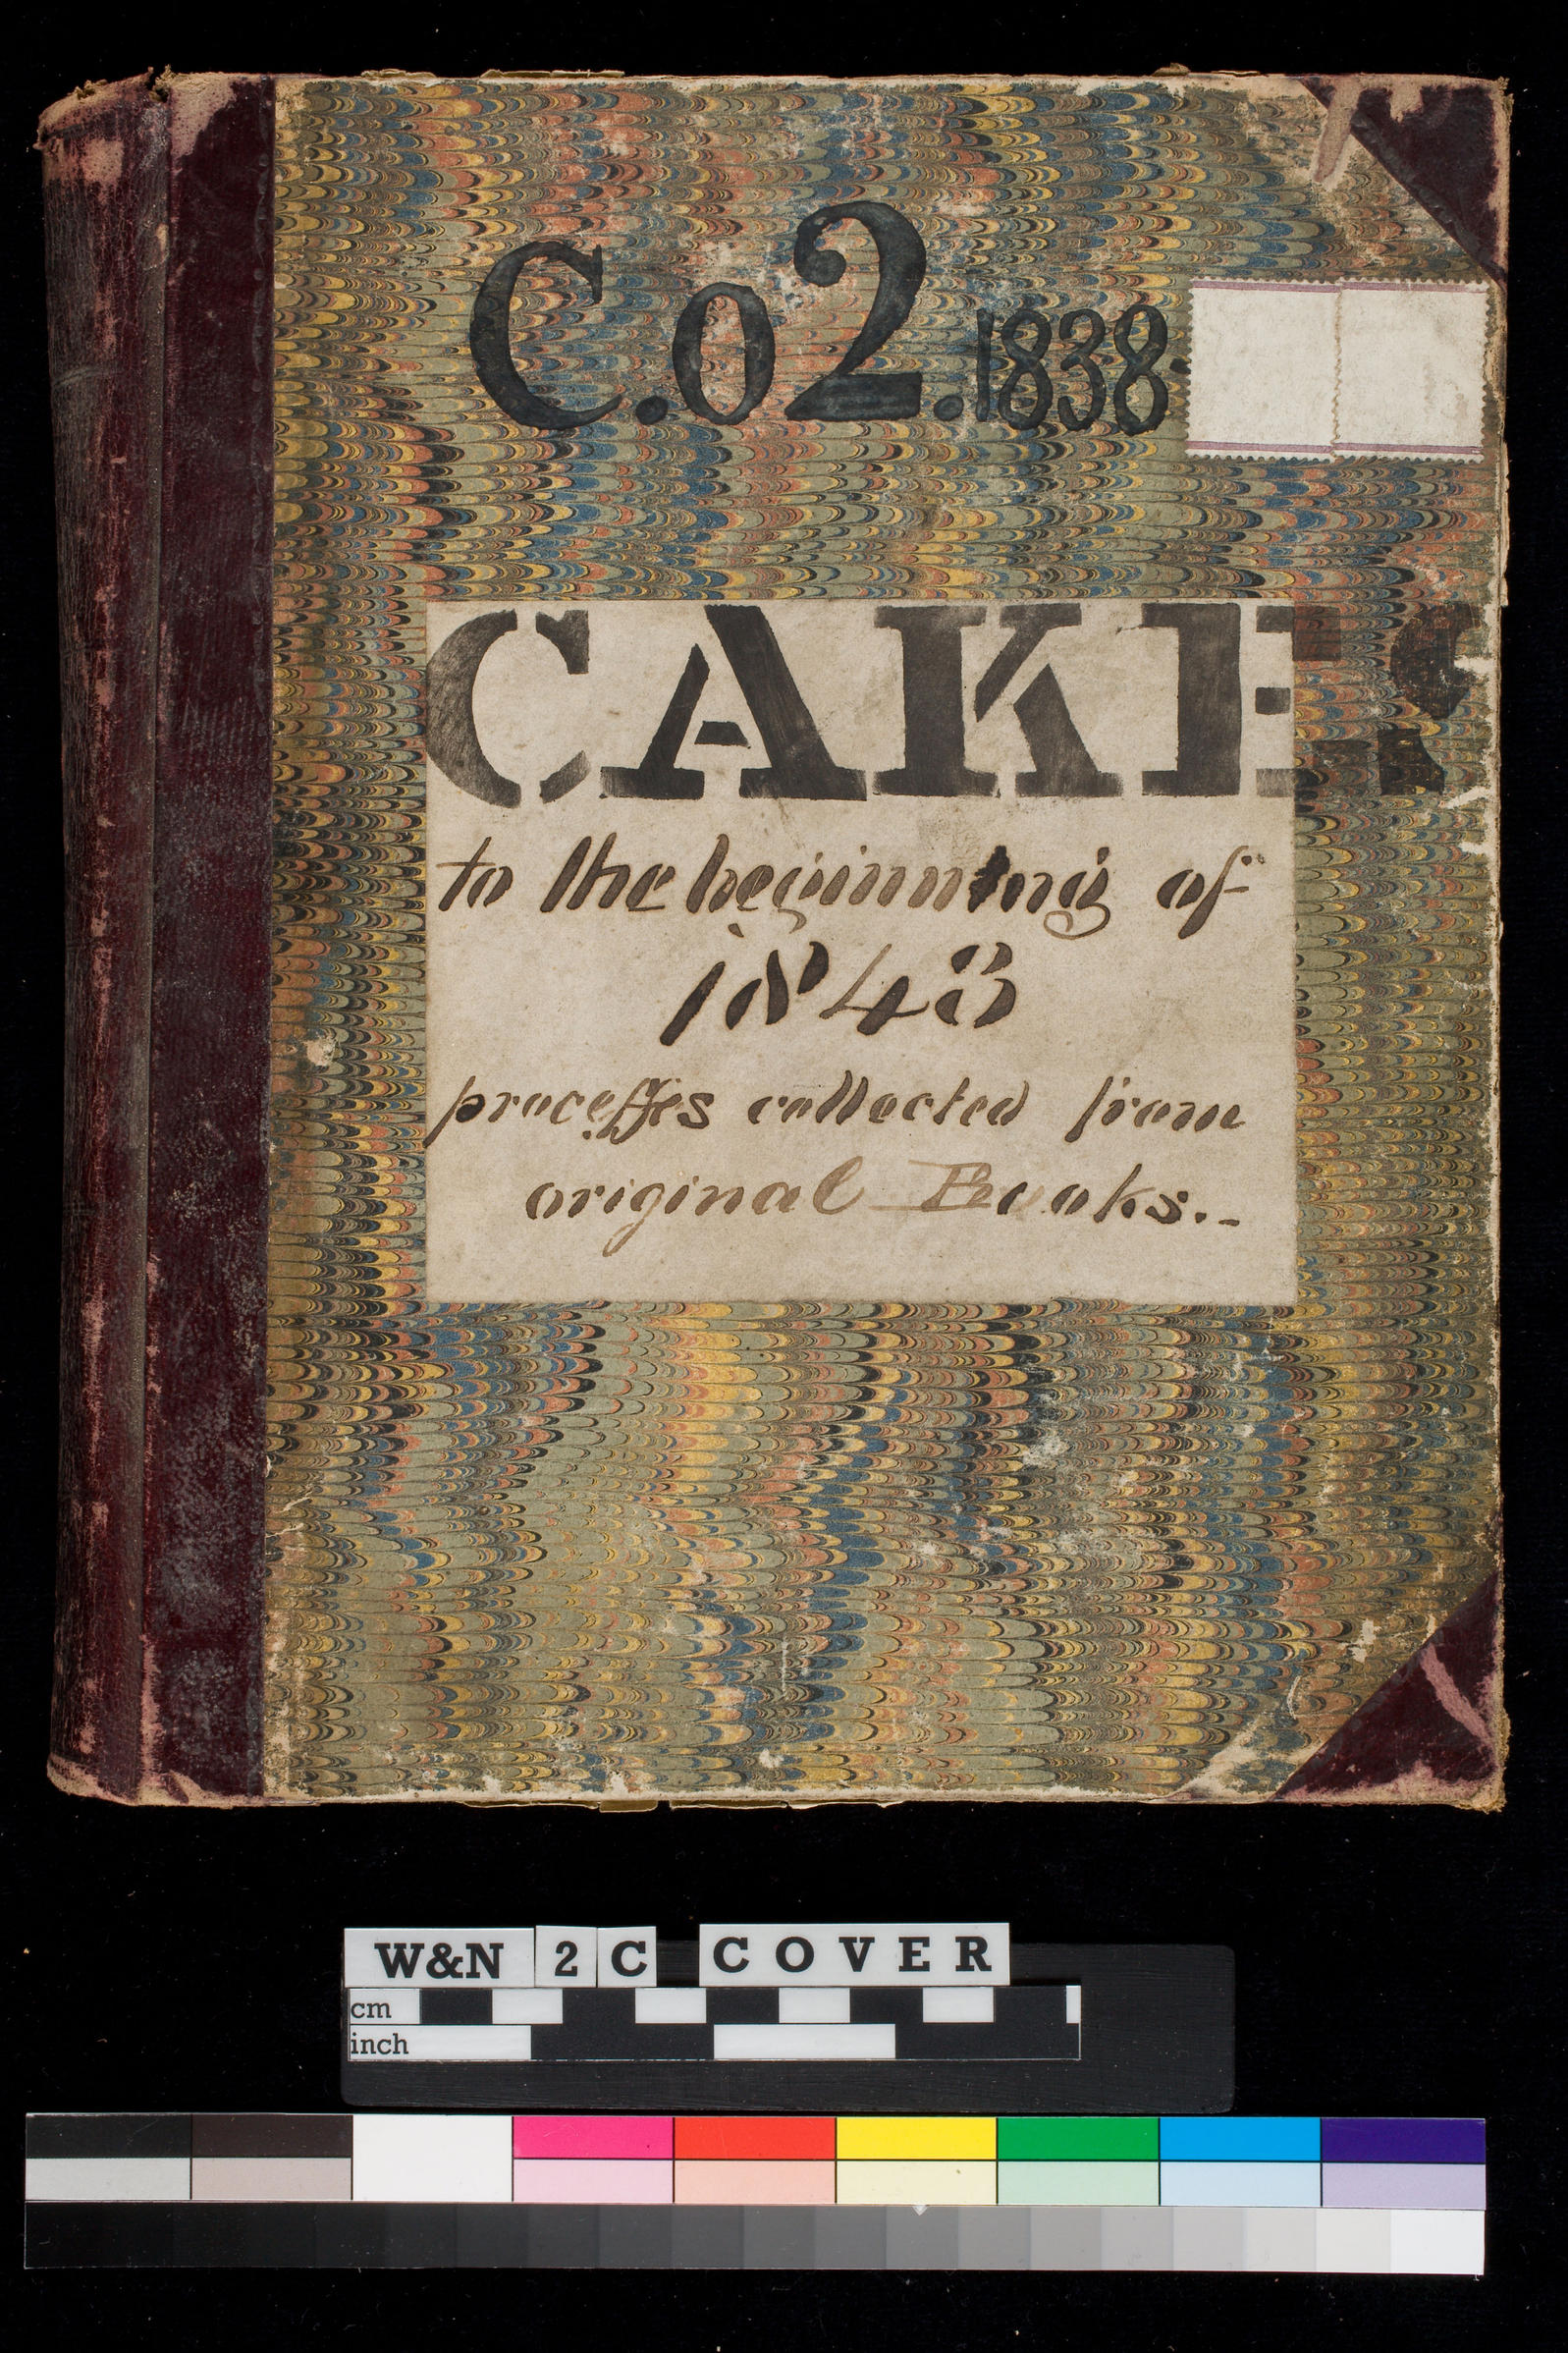 C.02.1838
CAKES
to the beginning of
1843
processes collected from
original Books.-
W&N 2 C COVER
cm
inch